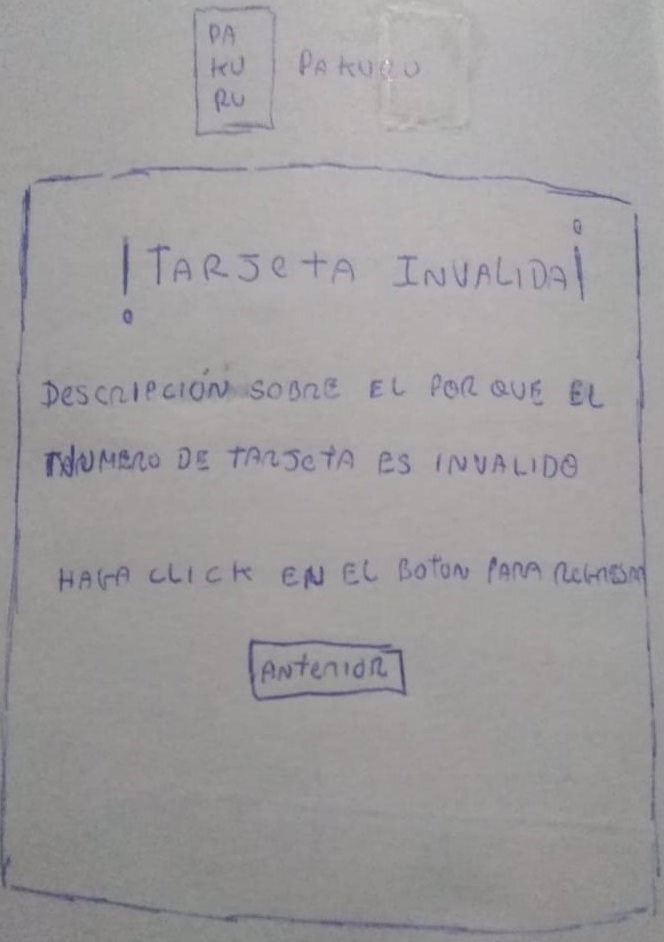 PA
KU
RU
PAKURU
!TARJETA INVALIDA¡
DESCRIPCIÓN SOBRE EL POR QUE EL
NUMERO DE TARJETA ES INVALIDO
HAGA CLICK EN EL BOTON PARA REGRESAR
ANTERIOR